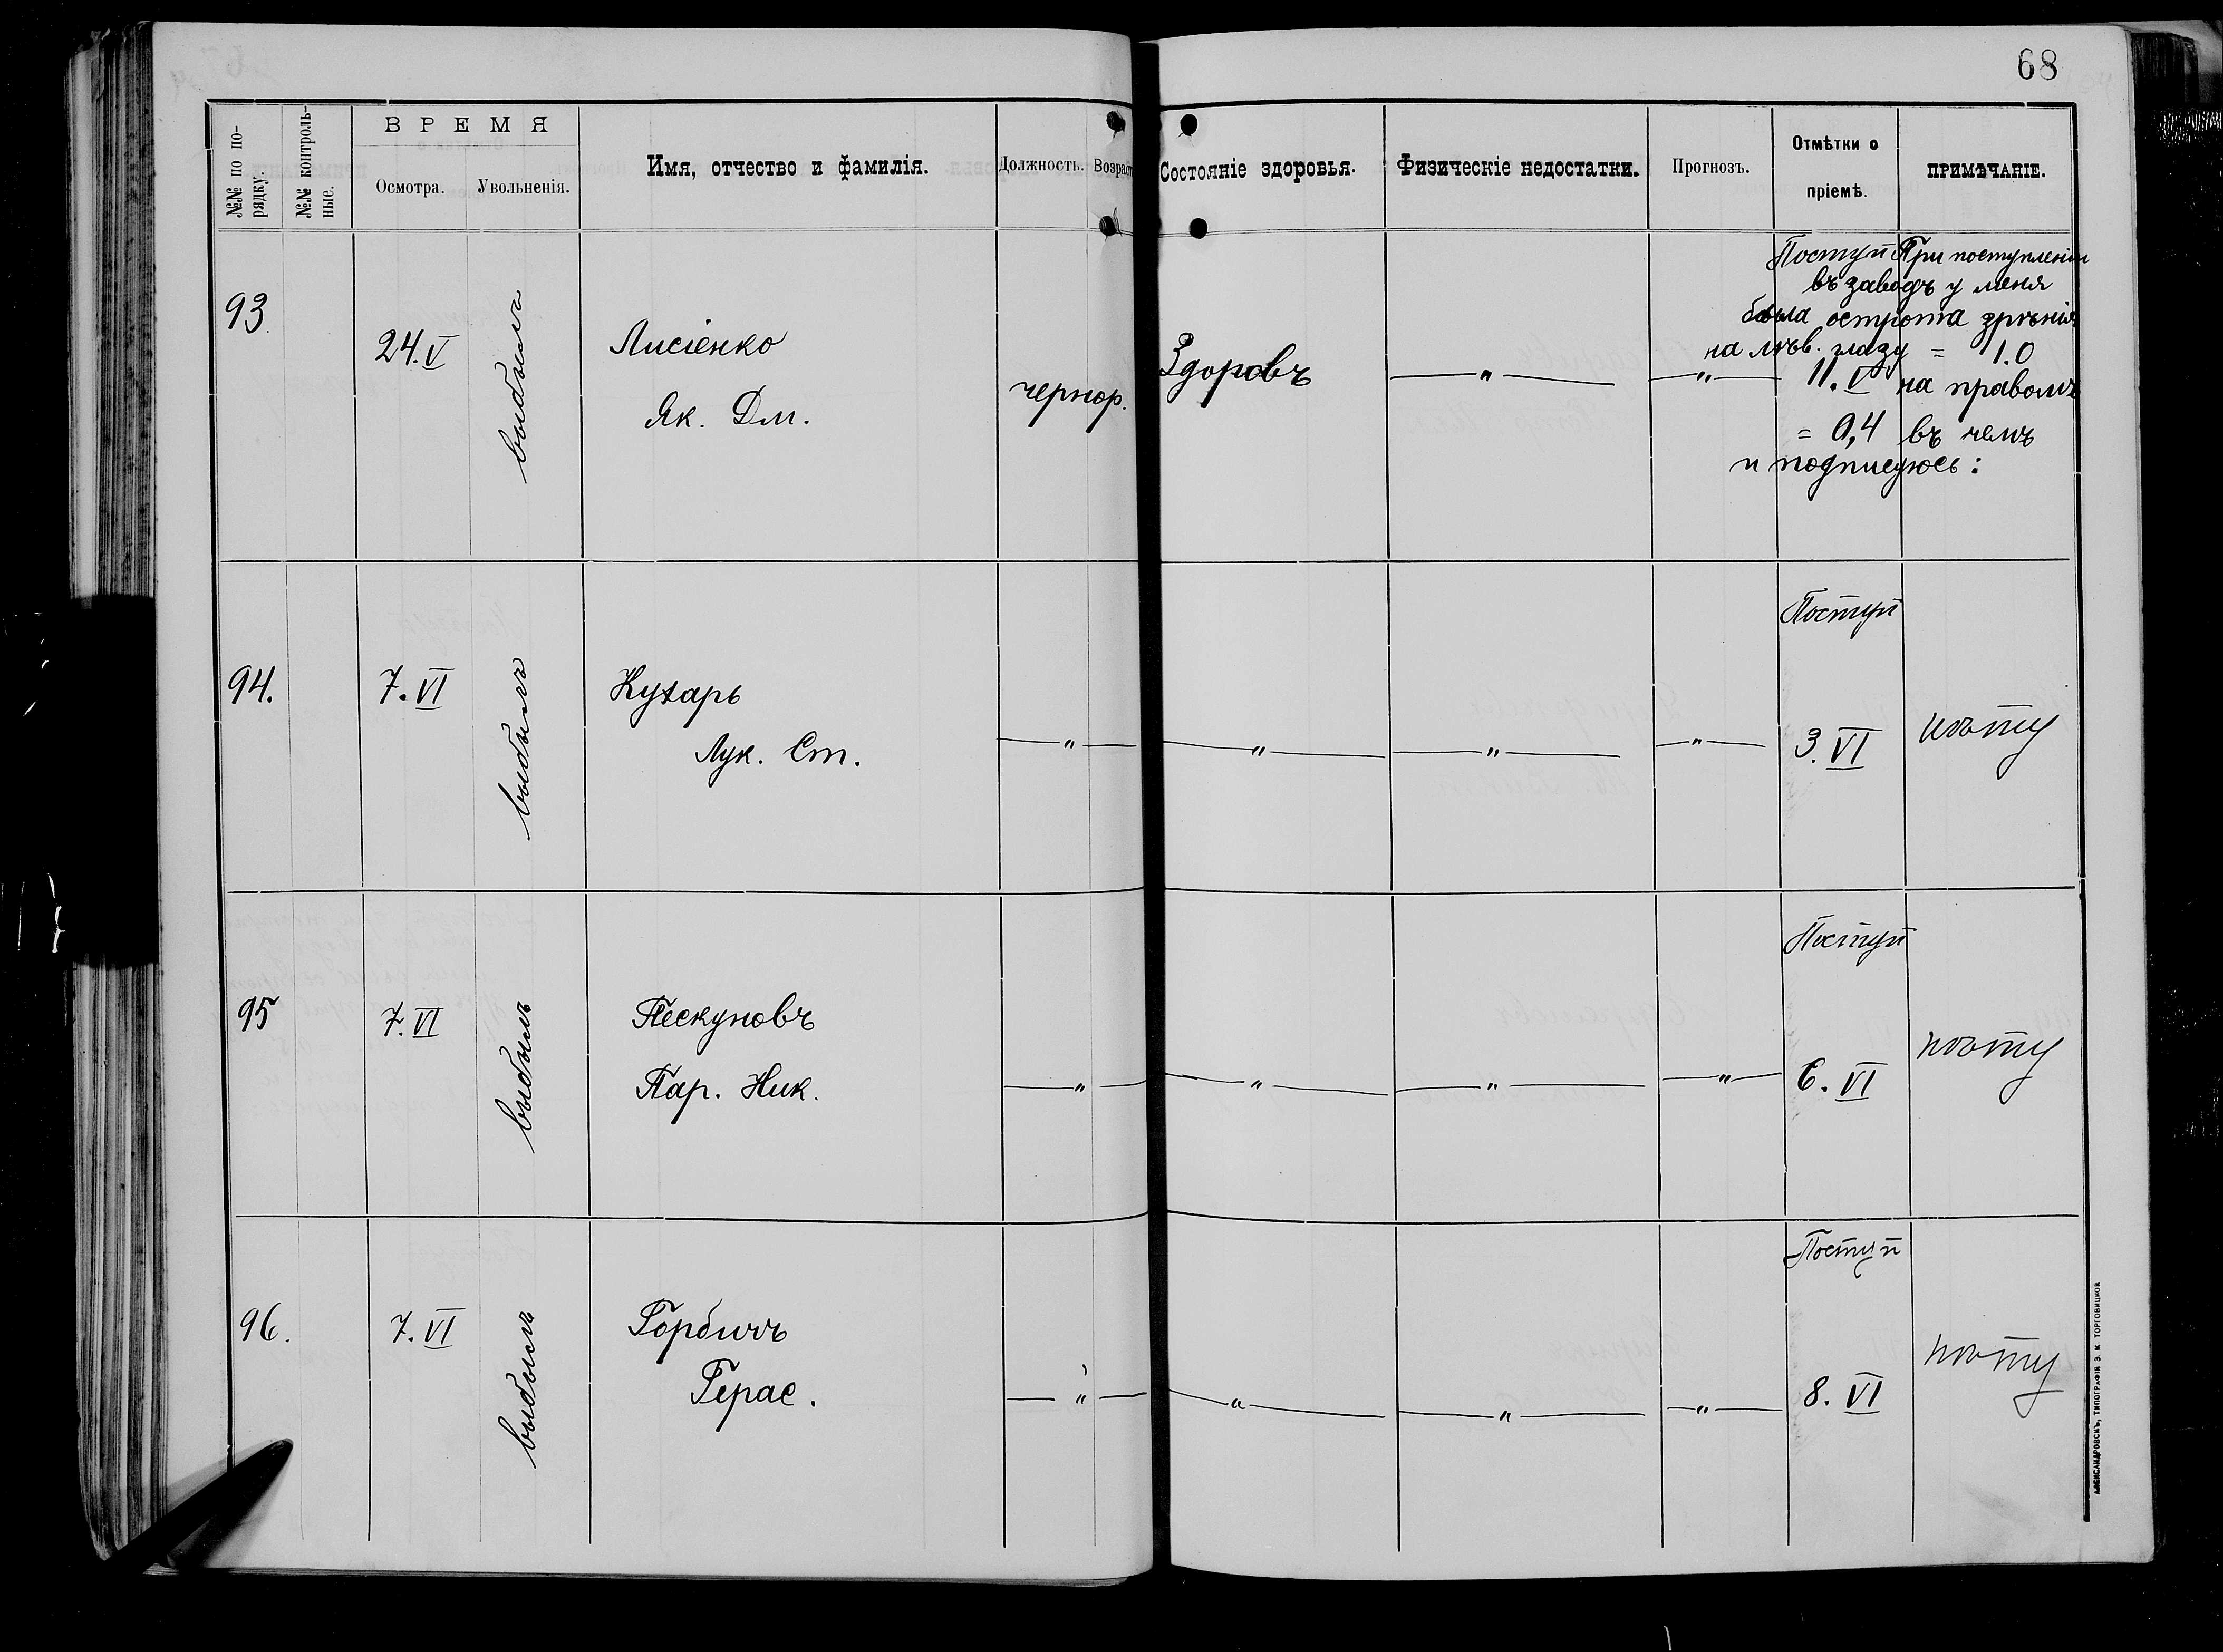 68
№№ по по-
рядку.
№№ контроль-
ные.
ВРЕМЯ
Осмотра.
Увольненія.
Имя, отчество и фамилія.
Должность.
Возраст
Состояніе здоровья.
Физическіе недостатки.
Прогнозъ.
Отмѣтки о
пріемѣ.
ПРИМѢЧАНІЕ.
93.
24.V
выбылъ
Лисіенко
Як. Дм.
чернор.
Здоровъ
— " —
— " —
Поступ
11.V
При поступленіи
въ заводъ у меня
была острота зрѣнія
на лѣв. глазу = 1.0
на правомъ
= 0,4 въ чемъ
и подписуюсь:
94.
7.VI
выбылъ
Кухарь
Лук. Ст.
— " —
— " —
— " —
— " —
Поступ
3.VI
95
7.VI
выбылъ
Пескуновъ
Пар. Ник.
— " —
— " —
— " —
— " —
Поступ
6.VI
96.
7.VI
выбылъ
Герас.
— " —
— " —
— " —
— " —
Поступ
8.VI
АЛЕКСАНДРОВСКЪ, ТИПОГРАФІЯ Э. М. ТОРГОВИЦКОЙ